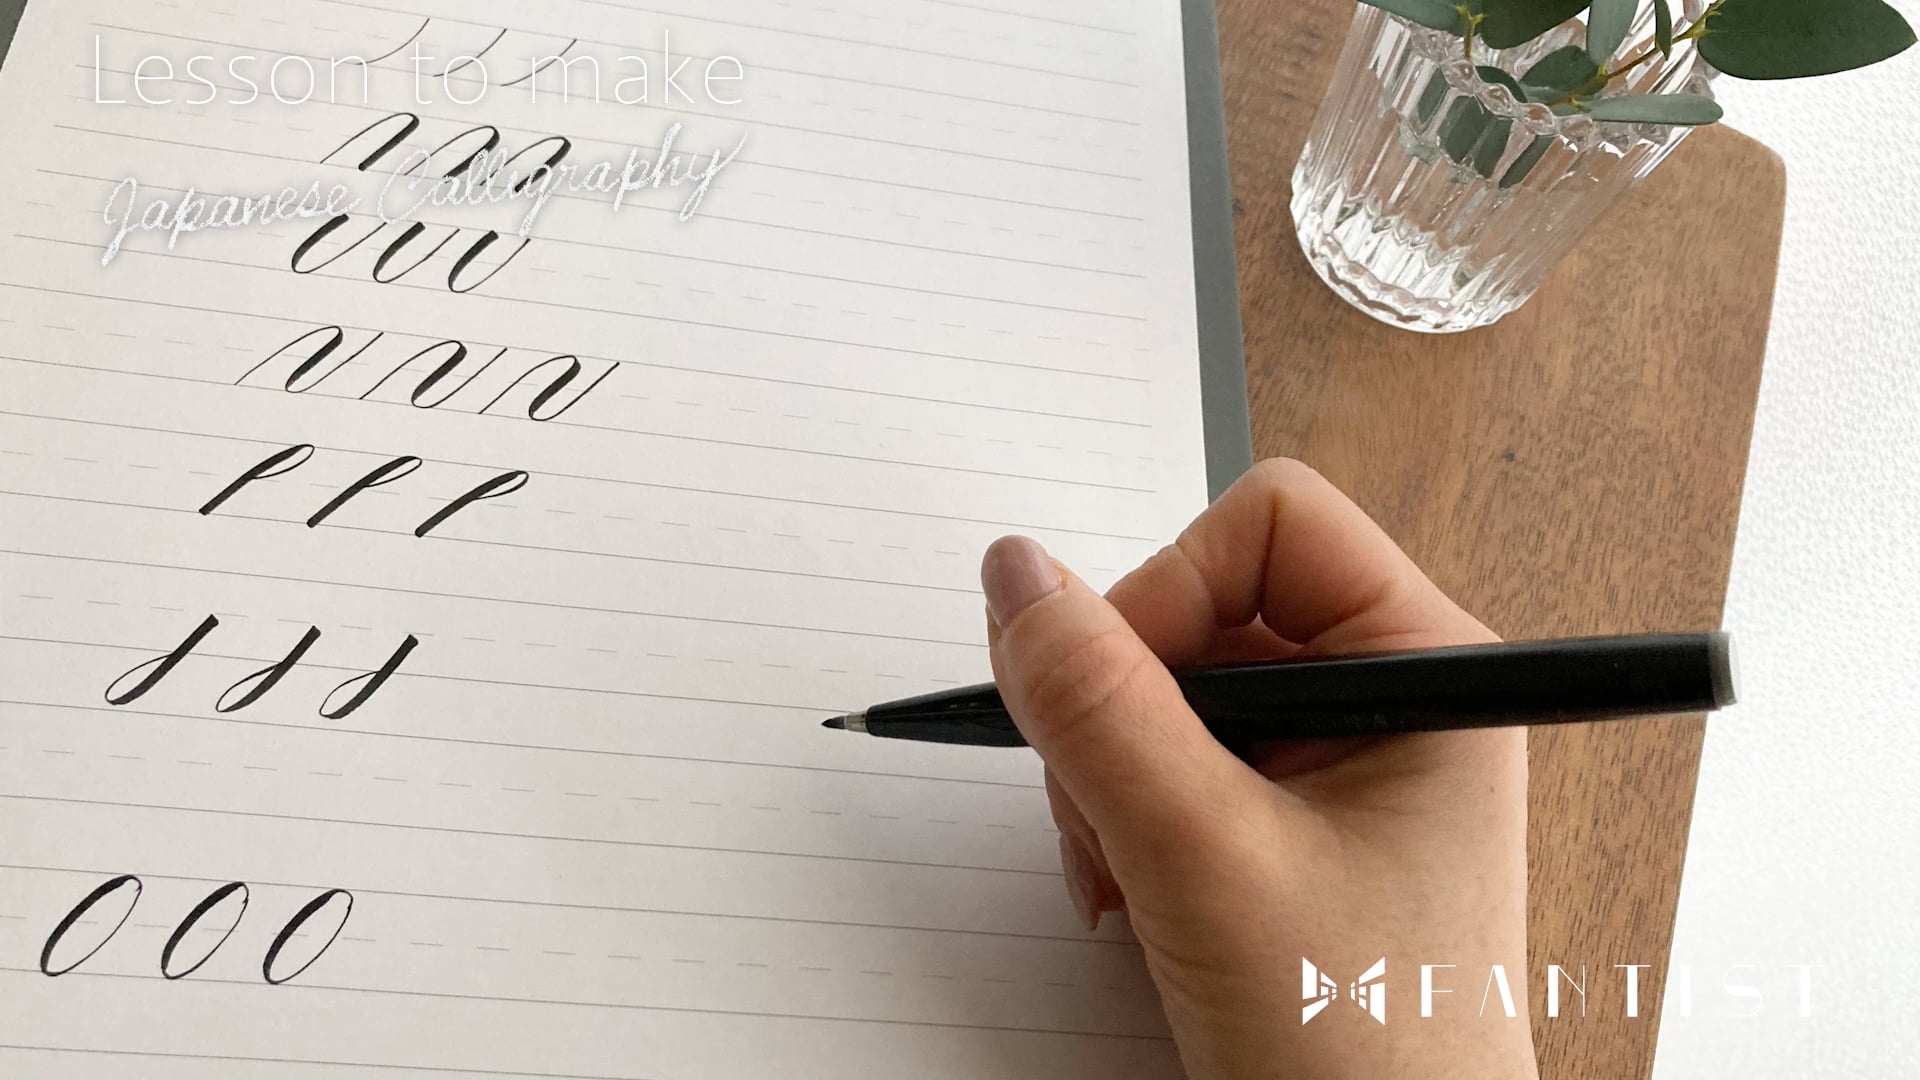 Lesson to make
Japanese Calligraphy
FANTIST